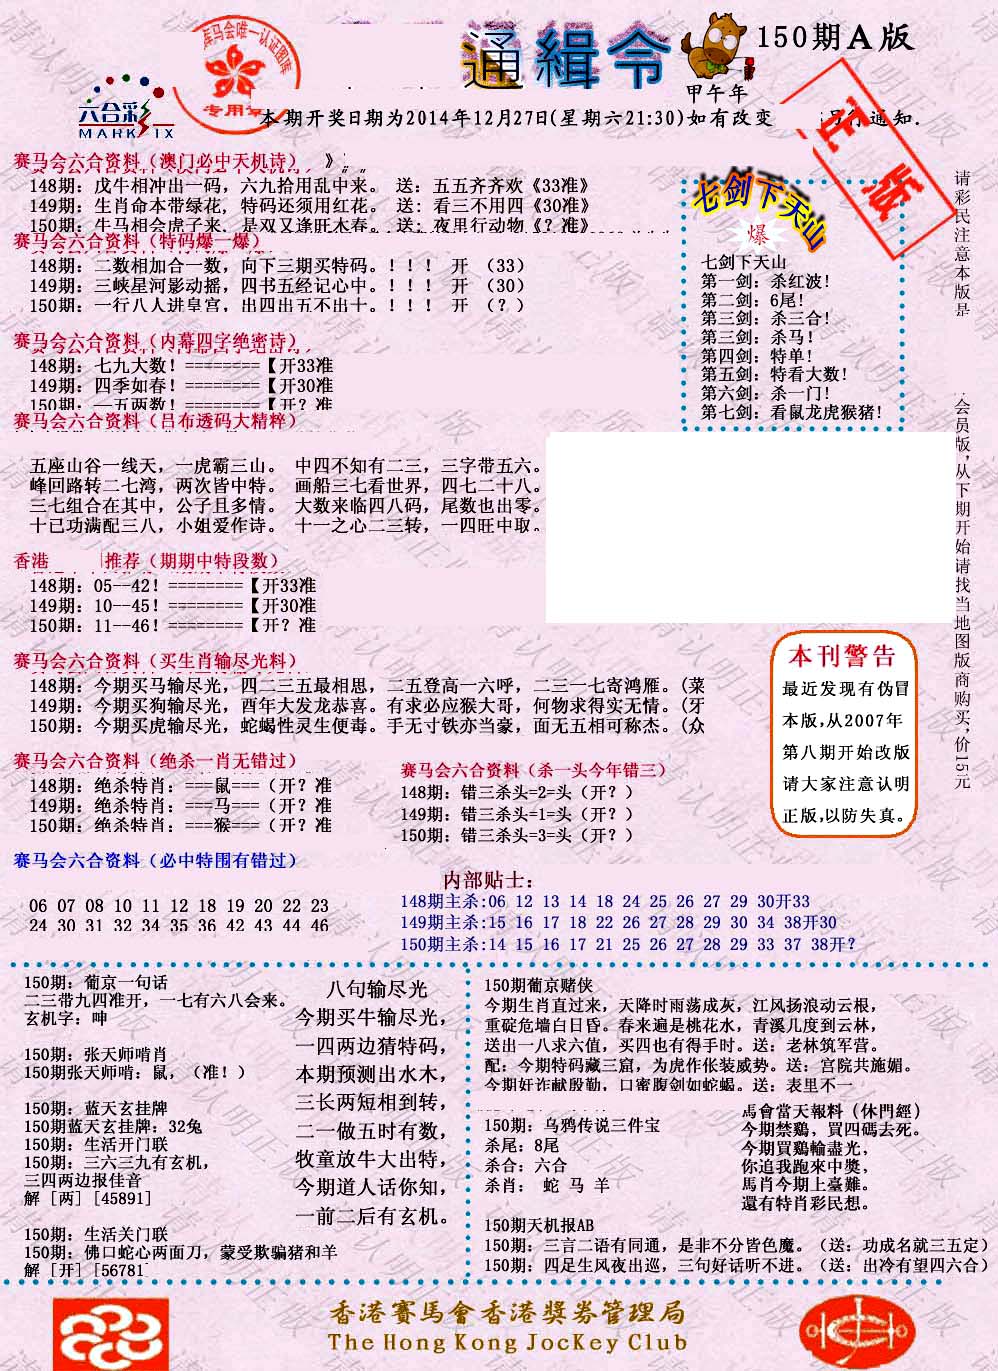 通緝令
150期A版
甲午年
六合彩
MARK SIX
专用
正版
本期开奖日期为2014年12月27日(星期六21:30)如有改变
通知.
赛马会六合资料（澳门必中天机诗）
148期：戊牛相冲出一码，六九拾用乱中来。 送：五五齐齐欢《33准》
149期：生肖命本带绿花，特码还须用红花。 送：看三不用四《30准》
150期：牛马相会虎子来，是双又逢旺木春。 送：夜里行动物《？准》
赛马会六合资料（特码爆一爆）
148期：二数相加合一数，向下三期买特码。！！！ 开 （33）
149期：三峡星河影动摇，四书五经记心中。！！！ 开 （30）
150期：一行八人进皇宫，出四出五不出十。！！！ 开 （？）
赛马会六合资料（内幕四字绝密诗）
148期：七九大数！========【开33准
149期：四季如春！========【开30准
150期：一五两数！========【开？准
赛马会六合资料（吕布透码大精粹）
五座山谷一线天，一虎霸三山。 中四不知有二三，三字带五六。
峰回路转二七湾，两次皆中特。 画船三七看世界，四七二十八。
三七组合在其中，公子且多情。 大数来临四八码，尾数也出零。
十已功满配三八，小姐爱作诗。 十一之心二三转，一四旺中取。
香港 推荐（期期中特段数）
148期：05--42！========【开33准
149期：10--45！========【开30准
150期：11--46！========【开？准
赛马会六合资料（买生肖输尽光料）
148期：今期买马输尽光，四二三五最相思，二五登高一六呼，二三一七寄鸿雁。(菜
149期：今期买狗输尽光，酉年大发龙恭喜。有求必应猴大哥，何物求得实无情。(牙
150期：今期买虎输尽光，蛇蝎性灵生便毒。手无寸铁亦当豪，面无五相可称杰。(众
赛马会六合资料（绝杀一肖无错过）
148期：绝杀特肖：===鼠===（开？准
149期：绝杀特肖：===马===（开？准
150期：绝杀特肖：===猴===（开？准
赛马会六合资料（杀一头今年错三）
148期：错三杀头=2=头（开？）
149期：错三杀头=1=头（开？）
150期：错三杀头=3=头（开？）
赛马会六合资料（必中特围有错过）
06 07 08 10 11 12 18 19 20 22 23
24 30 31 32 34 35 36 42 43 44 46
内部贴士：
148期主杀:06 12 13 14 18 24 25 26 27 29 30开33
149期主杀:15 16 17 18 22 26 27 28 29 30 34 38开30
150期主杀:14 15 16 17 21 25 26 27 28 29 33 37 38开？
七剑下天山
爆
七剑下天山
第一剑：杀红波！
第二剑：6尾！
第三剑：杀三合！
第三剑：杀马！
第四剑：特单！
第五剑：特看大数！
第六剑：杀一门！
第七剑：看鼠龙虎猴猪！
请彩民注意本版是
会员版，从下期开始请找当地图版商购买，价15元
本刊警告
最近发现有伪冒
本版,从2007年
第八期开始改版
请大家注意认明
正版,以防失真。
150期：葡京一句话
二三带九四准开，一七有六八会来。
玄机字：呻
150期：张天师啃肖
150期张天师啃：鼠，（准！）
150期：蓝天玄挂牌
150期蓝天玄挂牌：32兔
150期：生活开门联
150期：三六三九有玄机，
三四两边报佳音
解 [两] [45891]
150期：生活关门联
150期：佛口蛇心两面刀，蒙受欺骗猪和羊
解 [开] [56781]
八句输尽光
今期买牛输尽光，
一四两边猜特码，
本期预测出水木，
三长两短相到转，
二一做五时有数，
牧童放牛大出特，
今期道人话你知，
一前二后有玄机。
150期葡京赌侠
今期生肖直过来，天降时雨荡成灰，江风扬浪动云根，
重碇危墙白日昏。春来遍是桃花水，青溪几度到云林，
送出一八求六值，买四也有得手时。送：老林筑军营。
配：今期特码藏三窟，为虎作伥装威势。送：宫院共施媚。
今期奸诈献殷勤，口蜜腹剑如蛇蝎。送：表里不一
150期：乌鸦传说三件宝
杀尾：8尾
杀合：六合
杀肖： 蛇 马 羊
馬會當天報料（休門經）
今期禁鷄，買四碼去死。
今期買鷄輸盡光，
你追我跑來中獎，
馬肖今期上臺難。
還有特肖彩民想。
150期天机报AB
150期：三言二语有同通，是非不分皆色魔。（送：功成名就三五定）
150期：四足生风夜出巡，三句好话听不进。（送：出冷有望四六合）
香港賽馬會香港獎券管理局
The Hong Kong JocKey Club